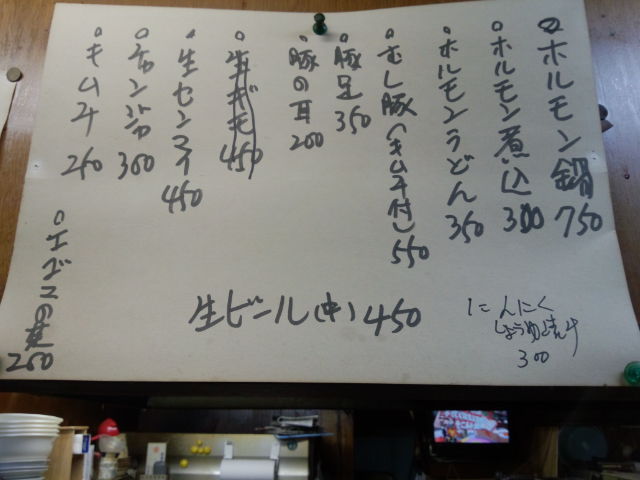 ホルモン鍋 750
ホルモン煮込 300
ホルモンうどん 350
むし豚(キムチ付) 550
豚足 350
豚の耳 200
生ギモ 450
生センマイ 450
チャンジャ 300
キムチ 250
エゴマの葉 250
生ビール(中) 450
にんにく
しょうゆ漬け
300